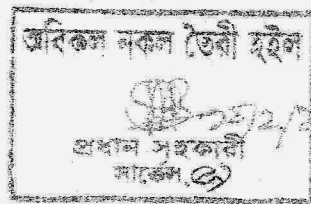 অবিকল নকল তৈরী হইল
প্রধান সহকারী
সার্কেল